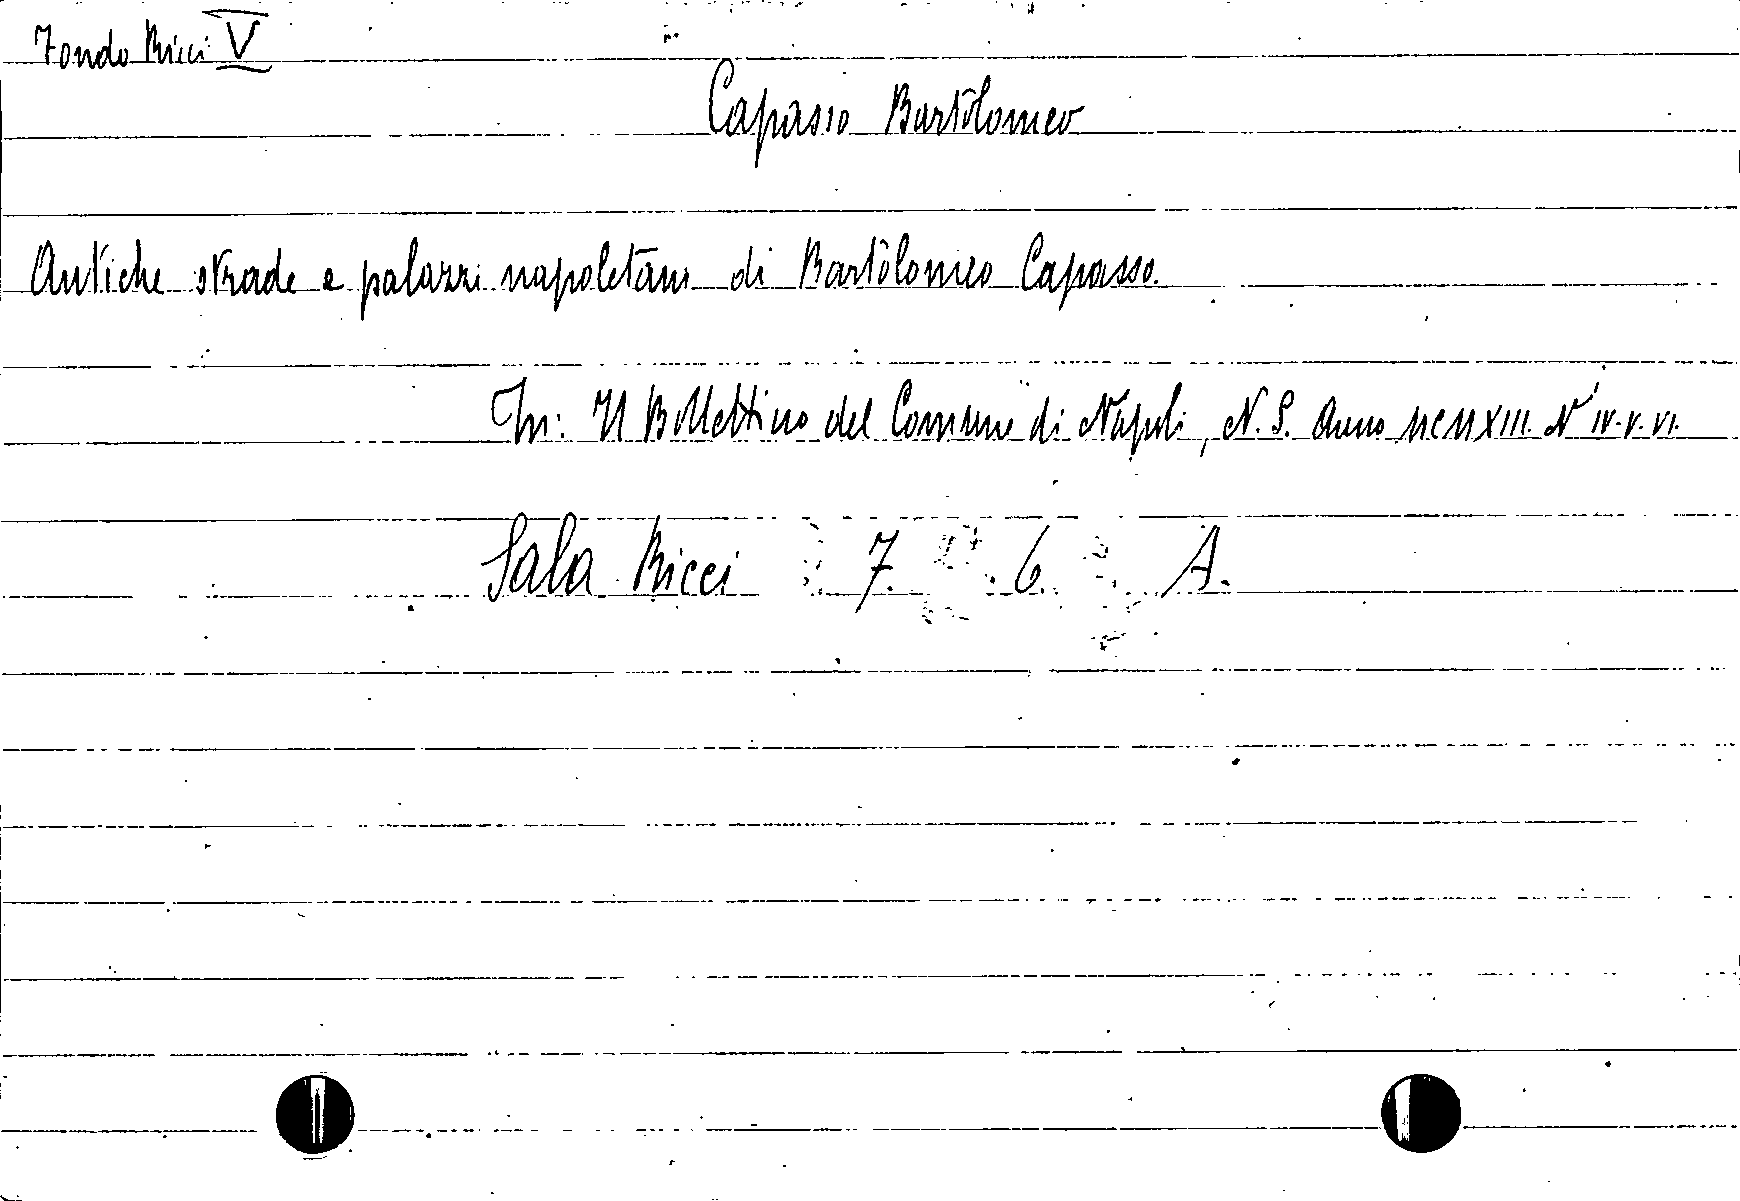 Fondo Ricci V
Capasso Bartolomeo
Antiche strade e palazzi napoletani di Bartolomeo Capasso.
In: Il Bollettino del Comune di Napoli, N. S. Anno MCMXIII. N° IV. V. VI.
Sala Ricci 7. 6. A.